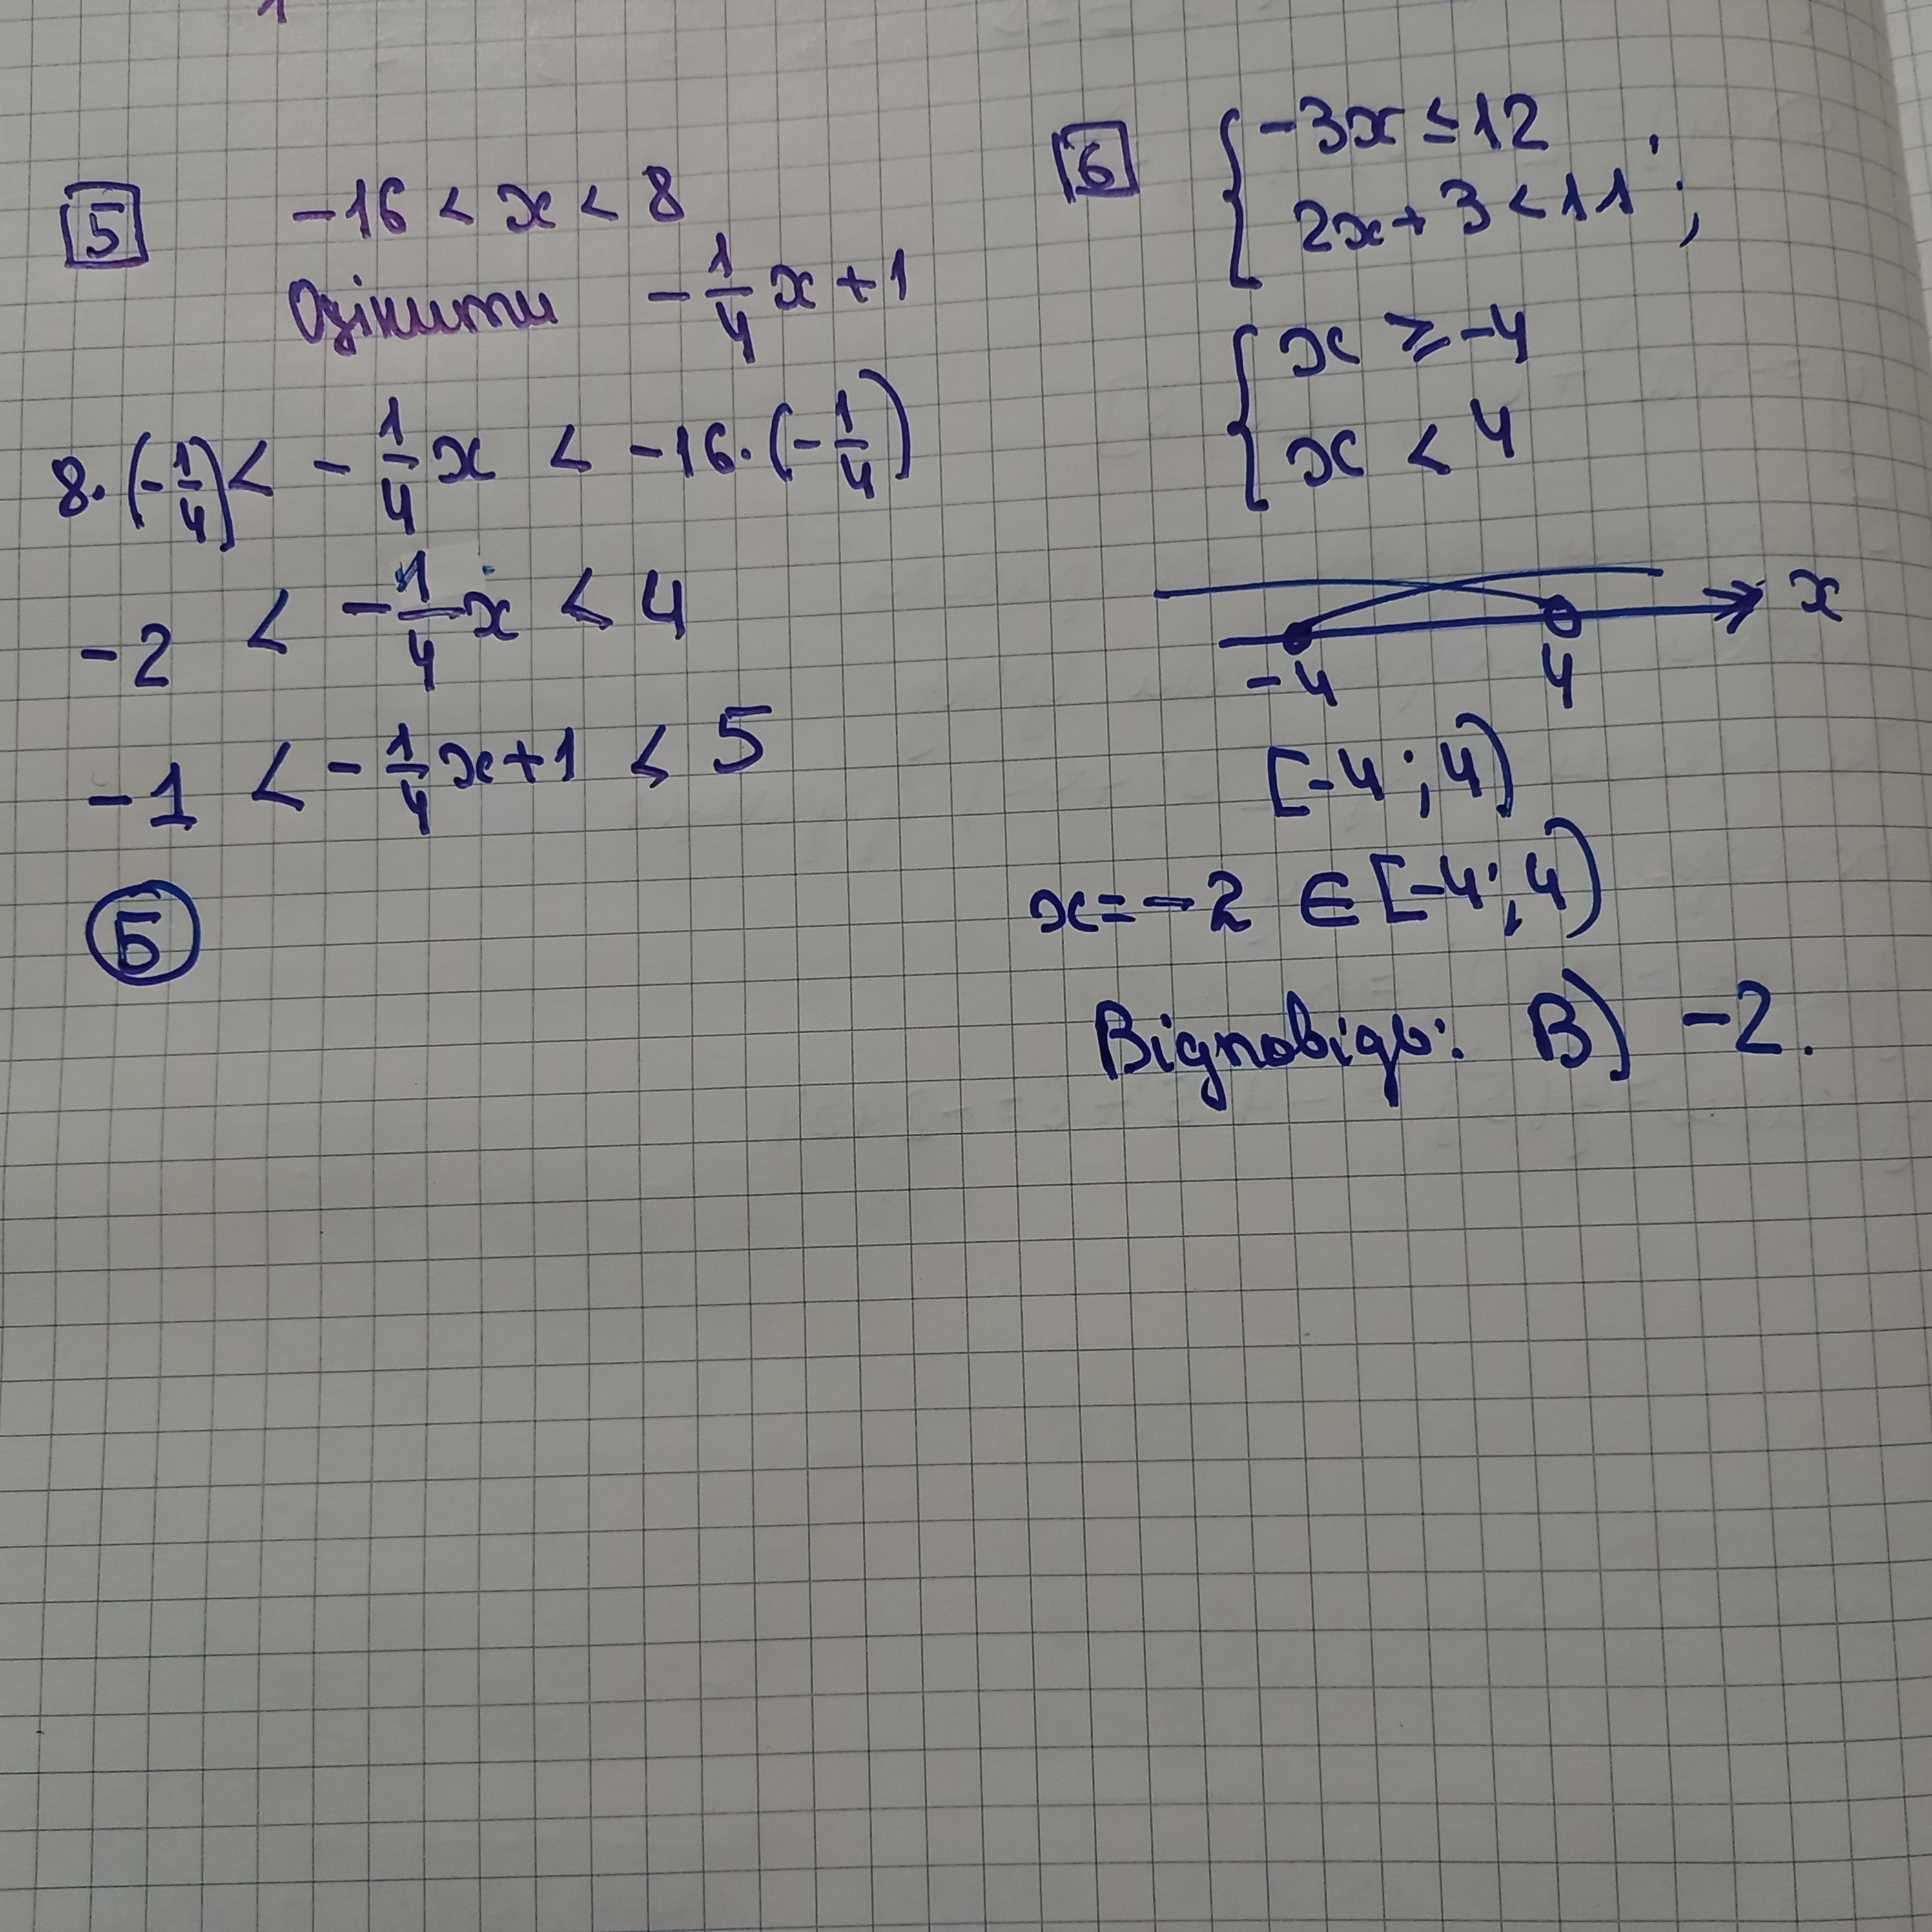 5
-16 < x < 8
Оцінити -1/4 x + 1
8·(-1/4) < -1/4 x < -16·(-1/4)
-2 < -1/4 x < 4
-1 < -1/4 x + 1 < 5
Б
6
{ -3x ≤ 12
2x + 3 < 11 ;
{ x ≥ -4
x < 4
x
-4 4
[-4 ; 4)
x = -2 ∈ [-4 ; 4)
Відповідь: В) -2.